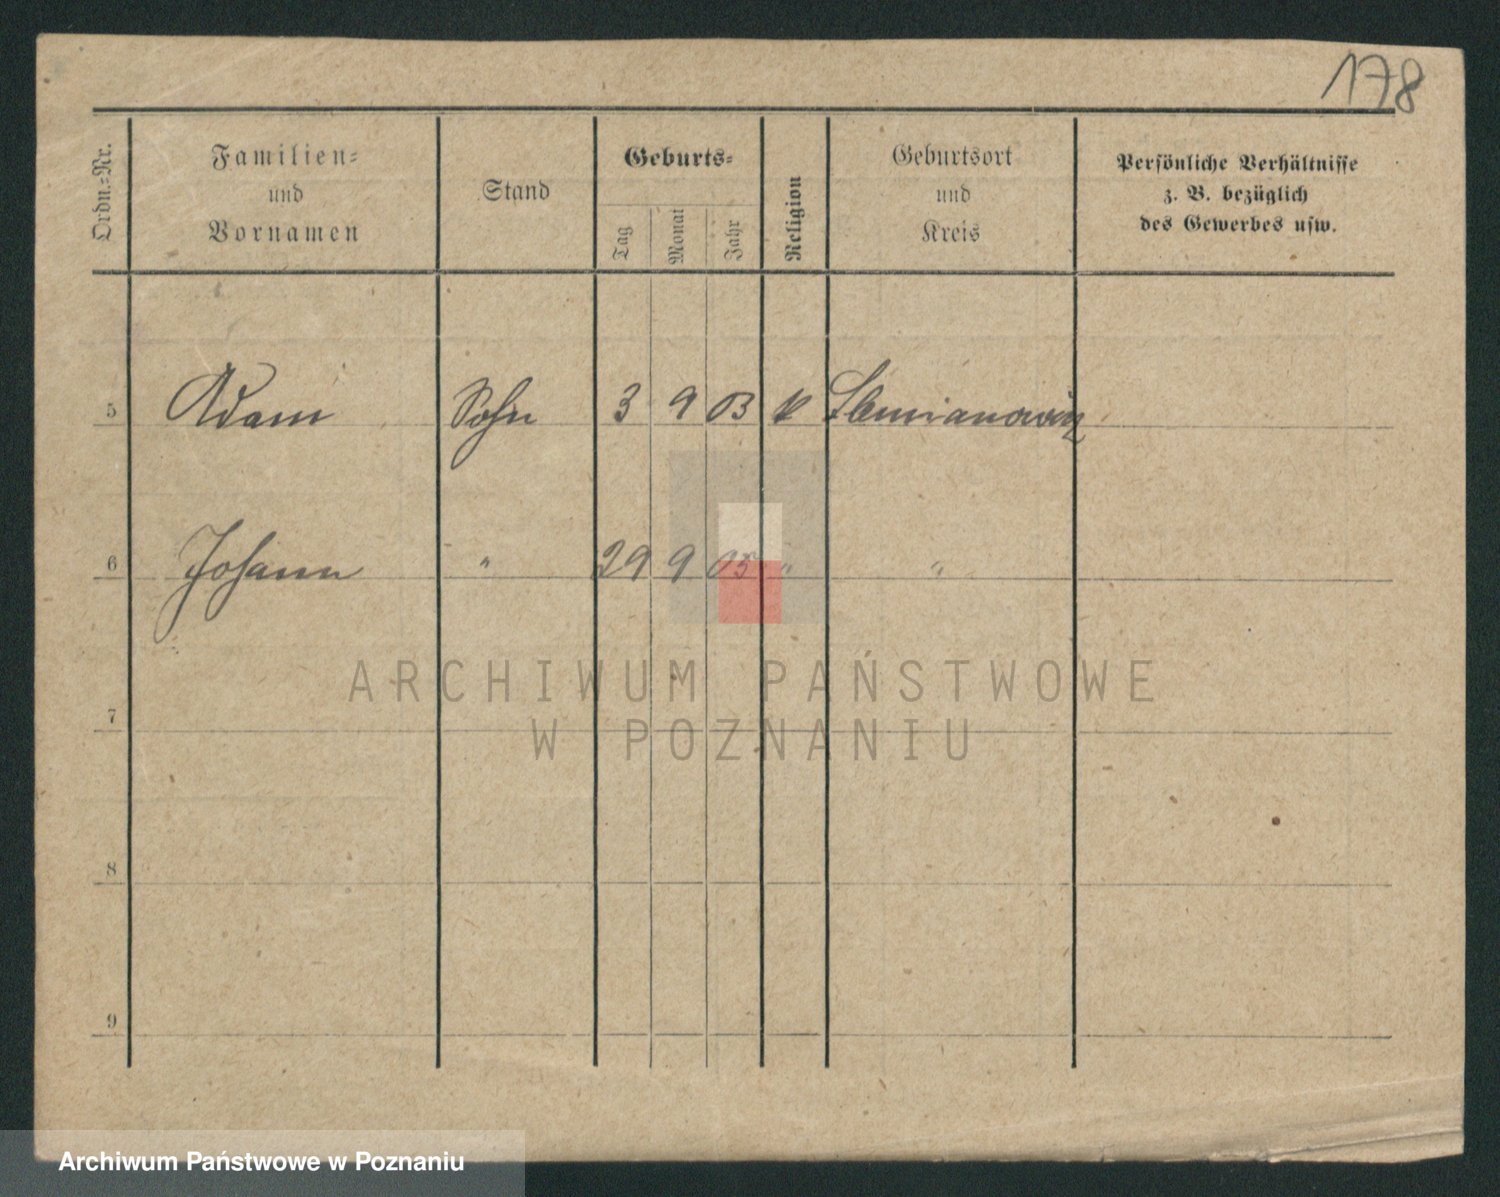 178
Ordn.=Nr.
Familien=
und
Vornamen
Stand
Geburts=
Tag
Monat
Jahr
Religion
Geburtsort
und
Kreis
Persönliche Verhältnisse
z. B. bezüglich
des Gewerbes usw.
5 Adam Sohn 3 9 03 k
6 Johann " 29 9 05 " "
ARCHIWUM PAŃSTWOWE
7
W POZNANIU
8
9
Archiwum Państwowe w Poznaniu